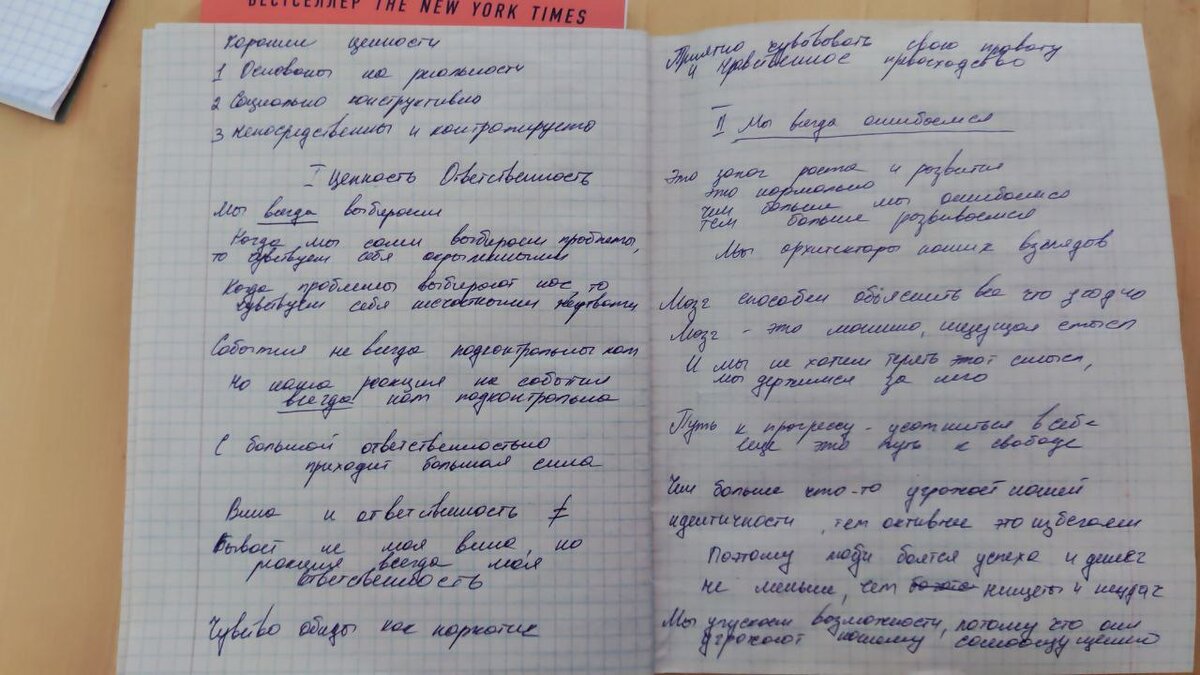 БЕСТСЕЛЛЕР THE NEW YORK TIMES
Хорошие ценности
1 Основаны на реальности
2 Социально конструктивно
3 непосредственны и контролируемо
I Ценность Ответственность
Мы всегда выбираем
Когда мы сами выбираем проблемы,
то чувствуем себя окрыленными
Когда проблемы выбирают нас то
чувствуем себя несчастными жертвами
События не всегда подконтрольны нам
Но наша реакция на события
всегда нам подконтрольна
С большой ответственностью
приходит большая сила
Вина и ответственность ≠
Бывает не моя вина, но
реакция всегда моя
ответственность
Чувство обиды как наркотик
Приятно чувствовать свою правоту
и нравственное превосходство
II Мы всегда ошибаемся
Это залог роста и развития
Это нормально
чем больше мы ошибаемся
тем больше развиваемся
Мы архитекторы наших взглядов
Мозг способен объяснить все что угодно
Мозг - это машина, ищущая смысл
И мы не хотим терять этот смысл,
мы держимся за него
Путь к прогрессу - усомниться в себе
еще это путь к свободе
Чем больше что-то угрожает нашей
идентичности, тем активнее это избегаем
Поэтому люди боятся успеха и денег
не меньше, чем нищеты и неудач
Мы упускаем возможности, потому что они
угрожают нашему самоощущению